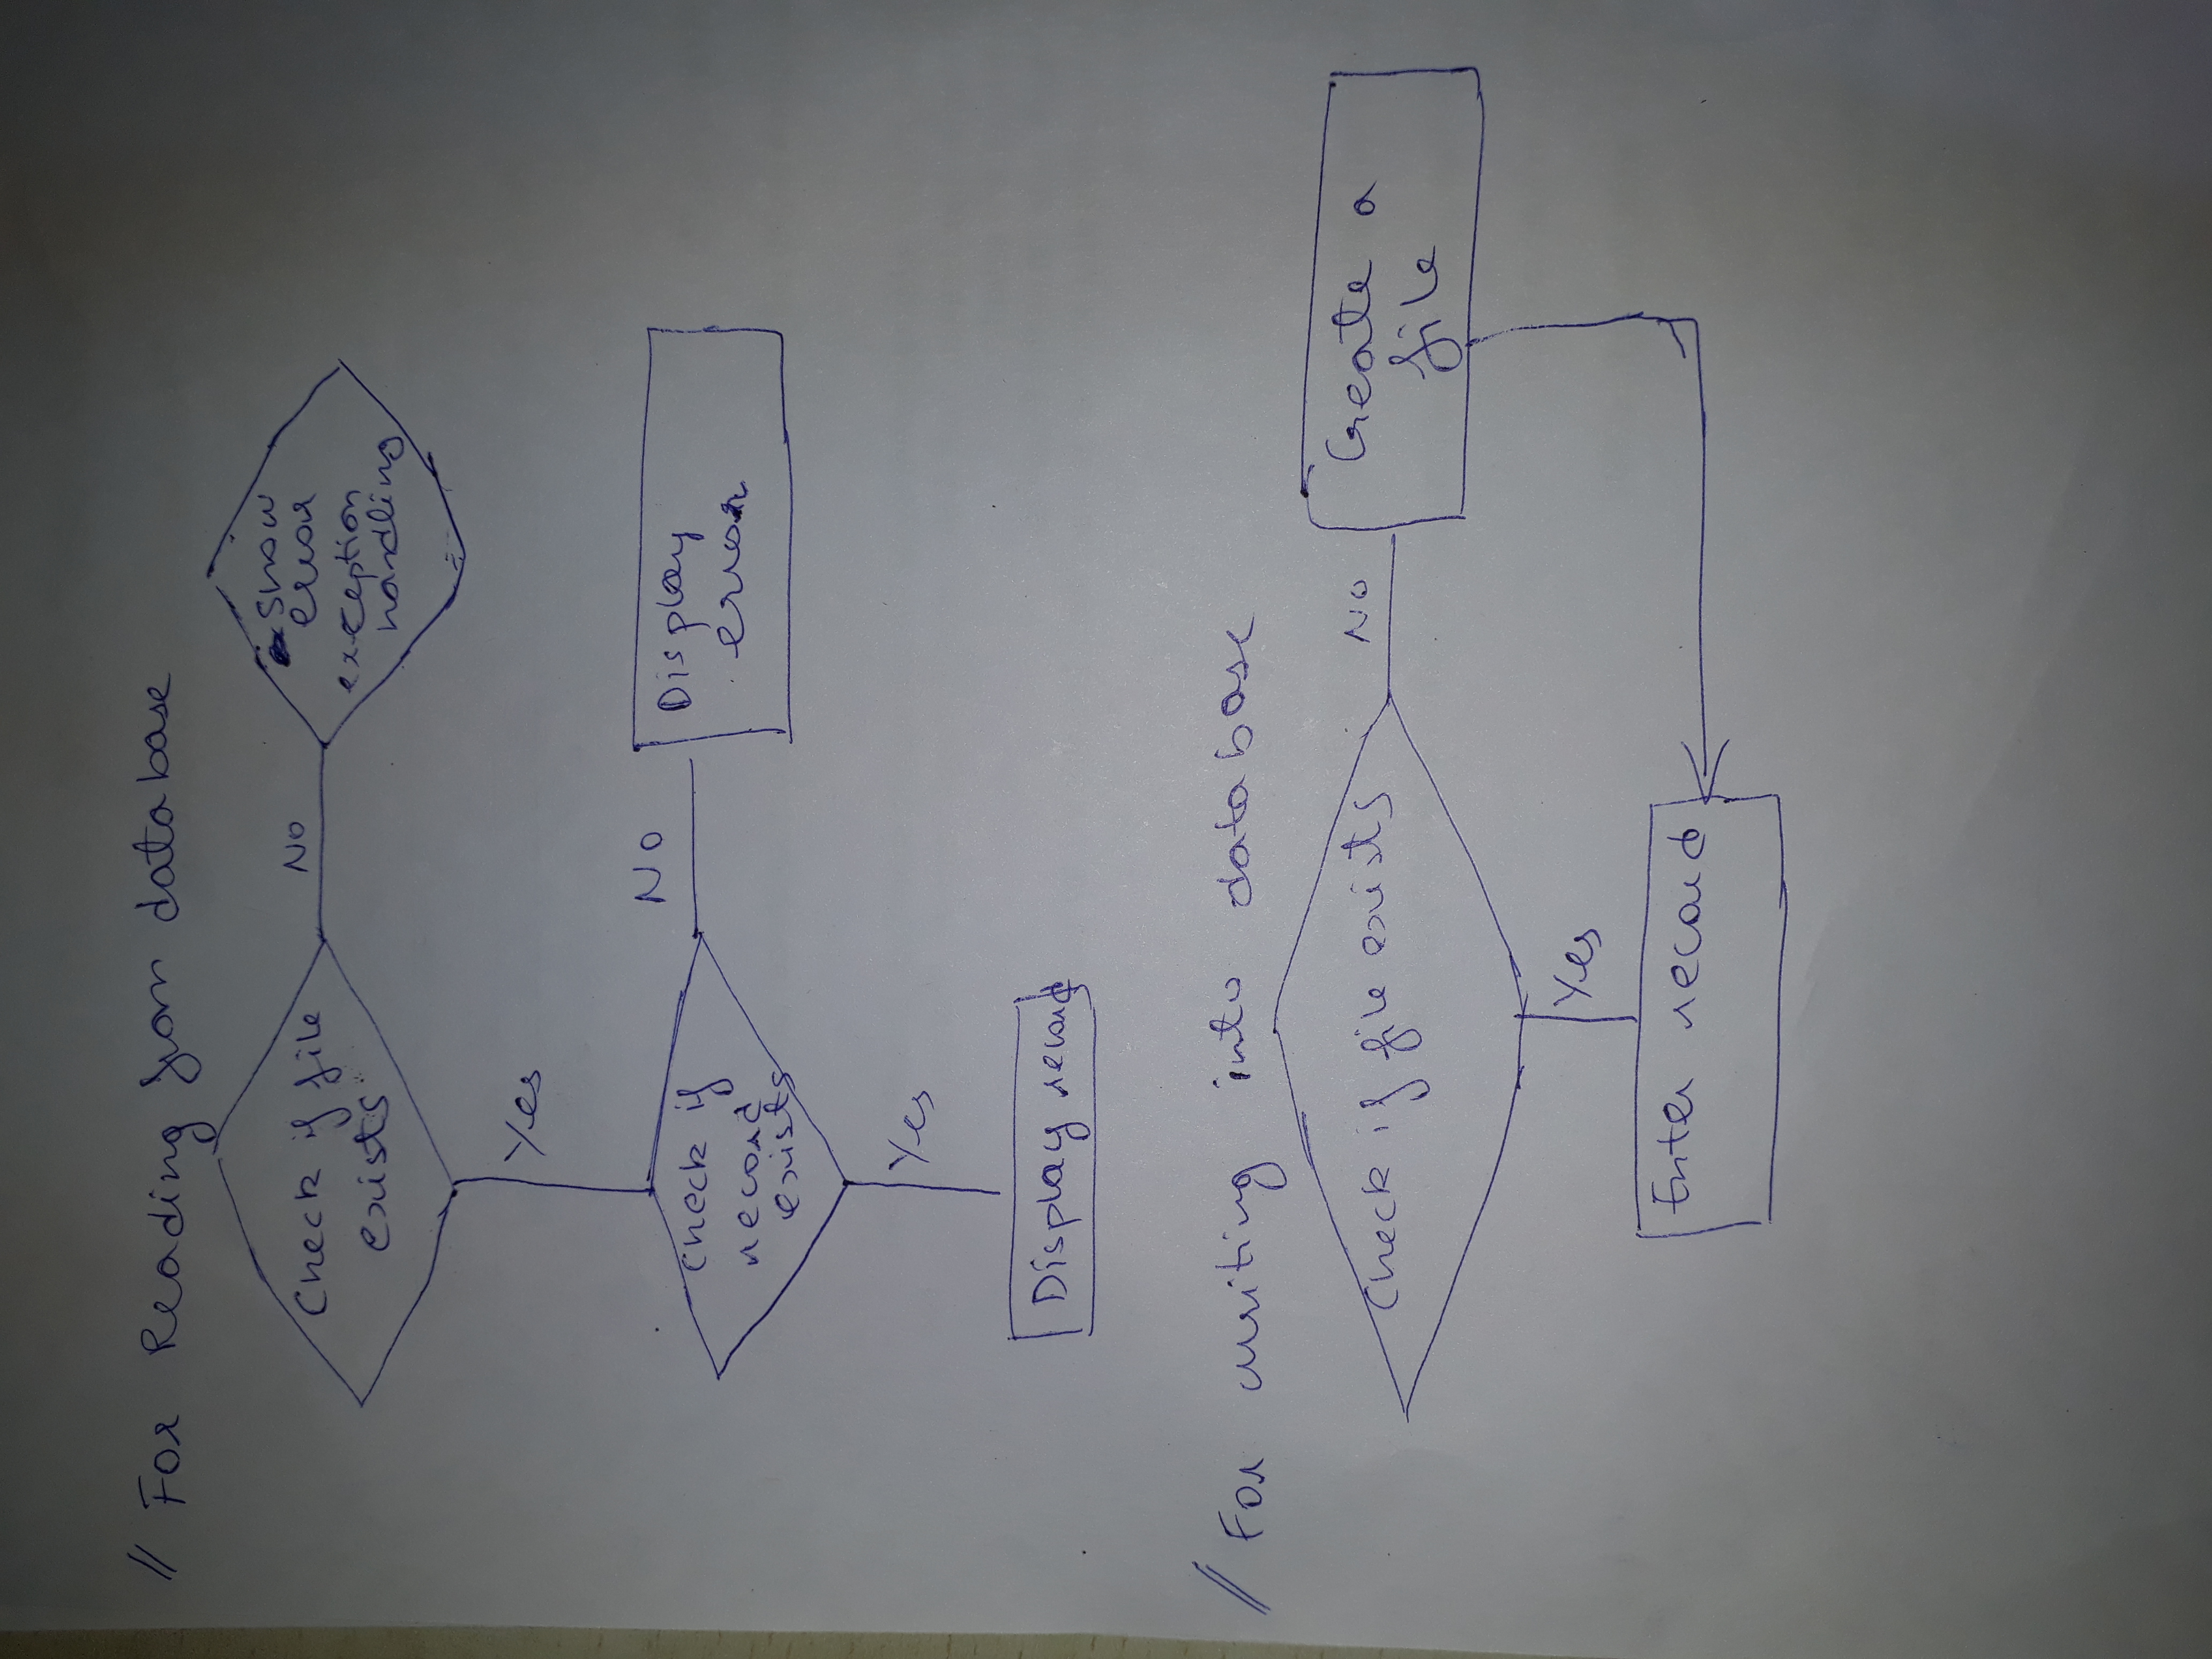 // For Reading from database
Check if file
exists
No
show
error
exception
handling
Yes
Check if
record
exists
No
Display
error
Yes
Display record
// For writing into database
Check if file exists
No
Create a
file
Yes
Enter record